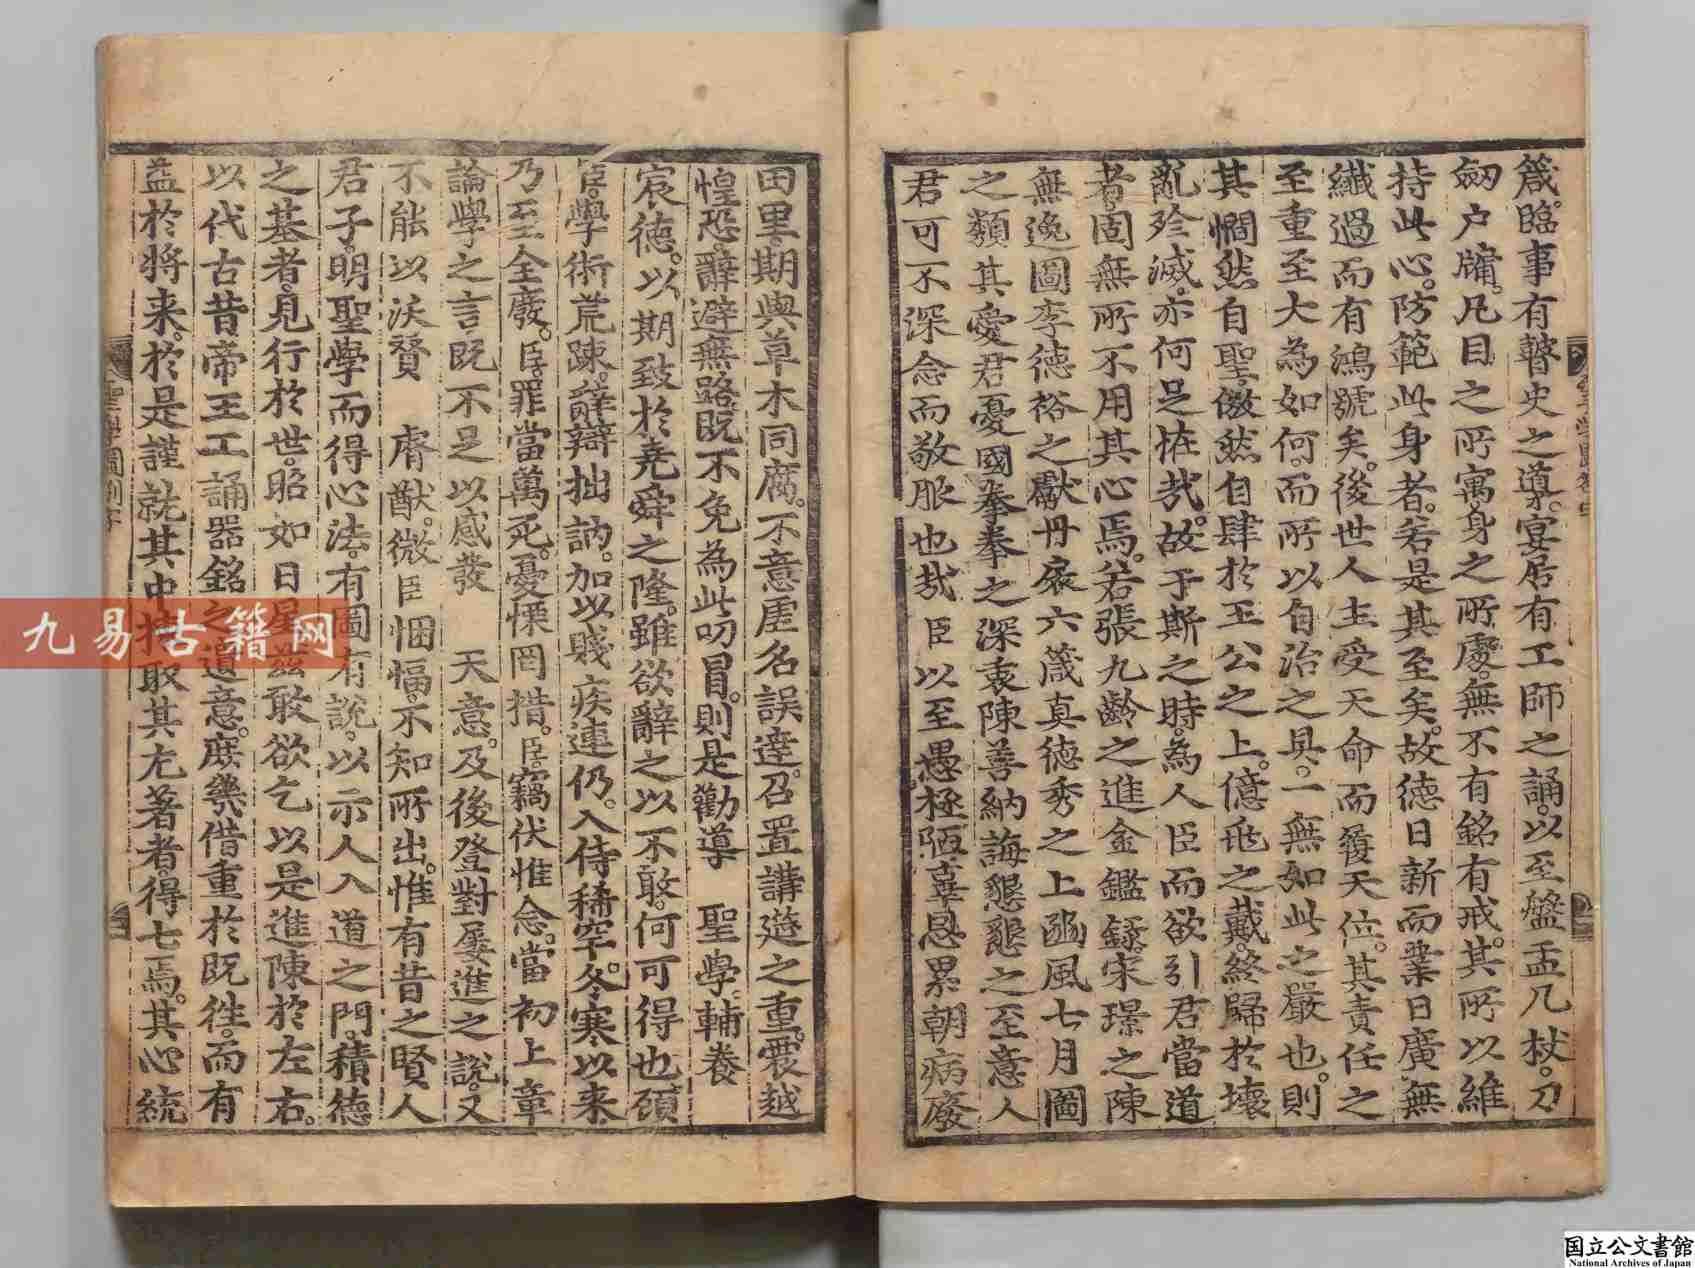 箴。臨事有瞽史之導。宴居有工師之誦。以至盤盂几杖。刀
劒户牖。凡目之所寓。身之所處。無不有銘有戒。其所以維
持此心。防範此身者。若是其至矣。故德日新而業日廣。無
纖過而有鴻號矣。後世人主受天命而履天位。其責任之
至重至大為如何。而所以自治之具。一無如此之嚴也。則
其憪然自聖。傲然自肆於王公之上。億兆之戴。終歸於壞
亂殄滅。亦何足恠㢤。故于斯之時。為人臣而欲引君當道
者。固無所不用其心焉。若張九齡之進金鑑錄。宋璟之陳
無逸圖。李德裕之獻丹扆六箴。真德秀之上豳風七月圖
之類。其愛君憂國拳拳之深衷。陳善納誨懇懇之至意。人
君可不深念而敬服也㢤。臣以至愚極陋。辜恩累朝。病廢
田里。期與草木同腐。不意虛名誤達。召置講筵之重。震越
惶恐。辭避無路。既不免為此叨冒。則是勸導 聖學。輔養
宸德。以期致於堯舜之隆。雖欲辭之以不敢。何可得也。顧
臣。學術荒踈。辭辯拙訥。加以賤疾連仍。入侍稀罕。冬寒以來。
乃至全廢。臣罪當萬死。憂慄罔措。臣竊伏惟念。當初上章
論學之言。既不足以感發 天意。及後登對屢進之說。又
不能以沃贊 睿猷。微臣悃愊。不知所出。惟有昔之賢人
君子。明聖學而得心法。有圖有說。以示人入道之門。積德
之基者。見行於世。昭如日星。玆敢欲乞以是進陳於左右。
以代古昔帝王工誦器銘之遺意。庶㡬借重於既徃。而有
益於將来。於是謹就其中揀取其尤著者。得七焉。其心統
聖學圖劄子
九易古籍网
国立公文書館
National Archives of Japan